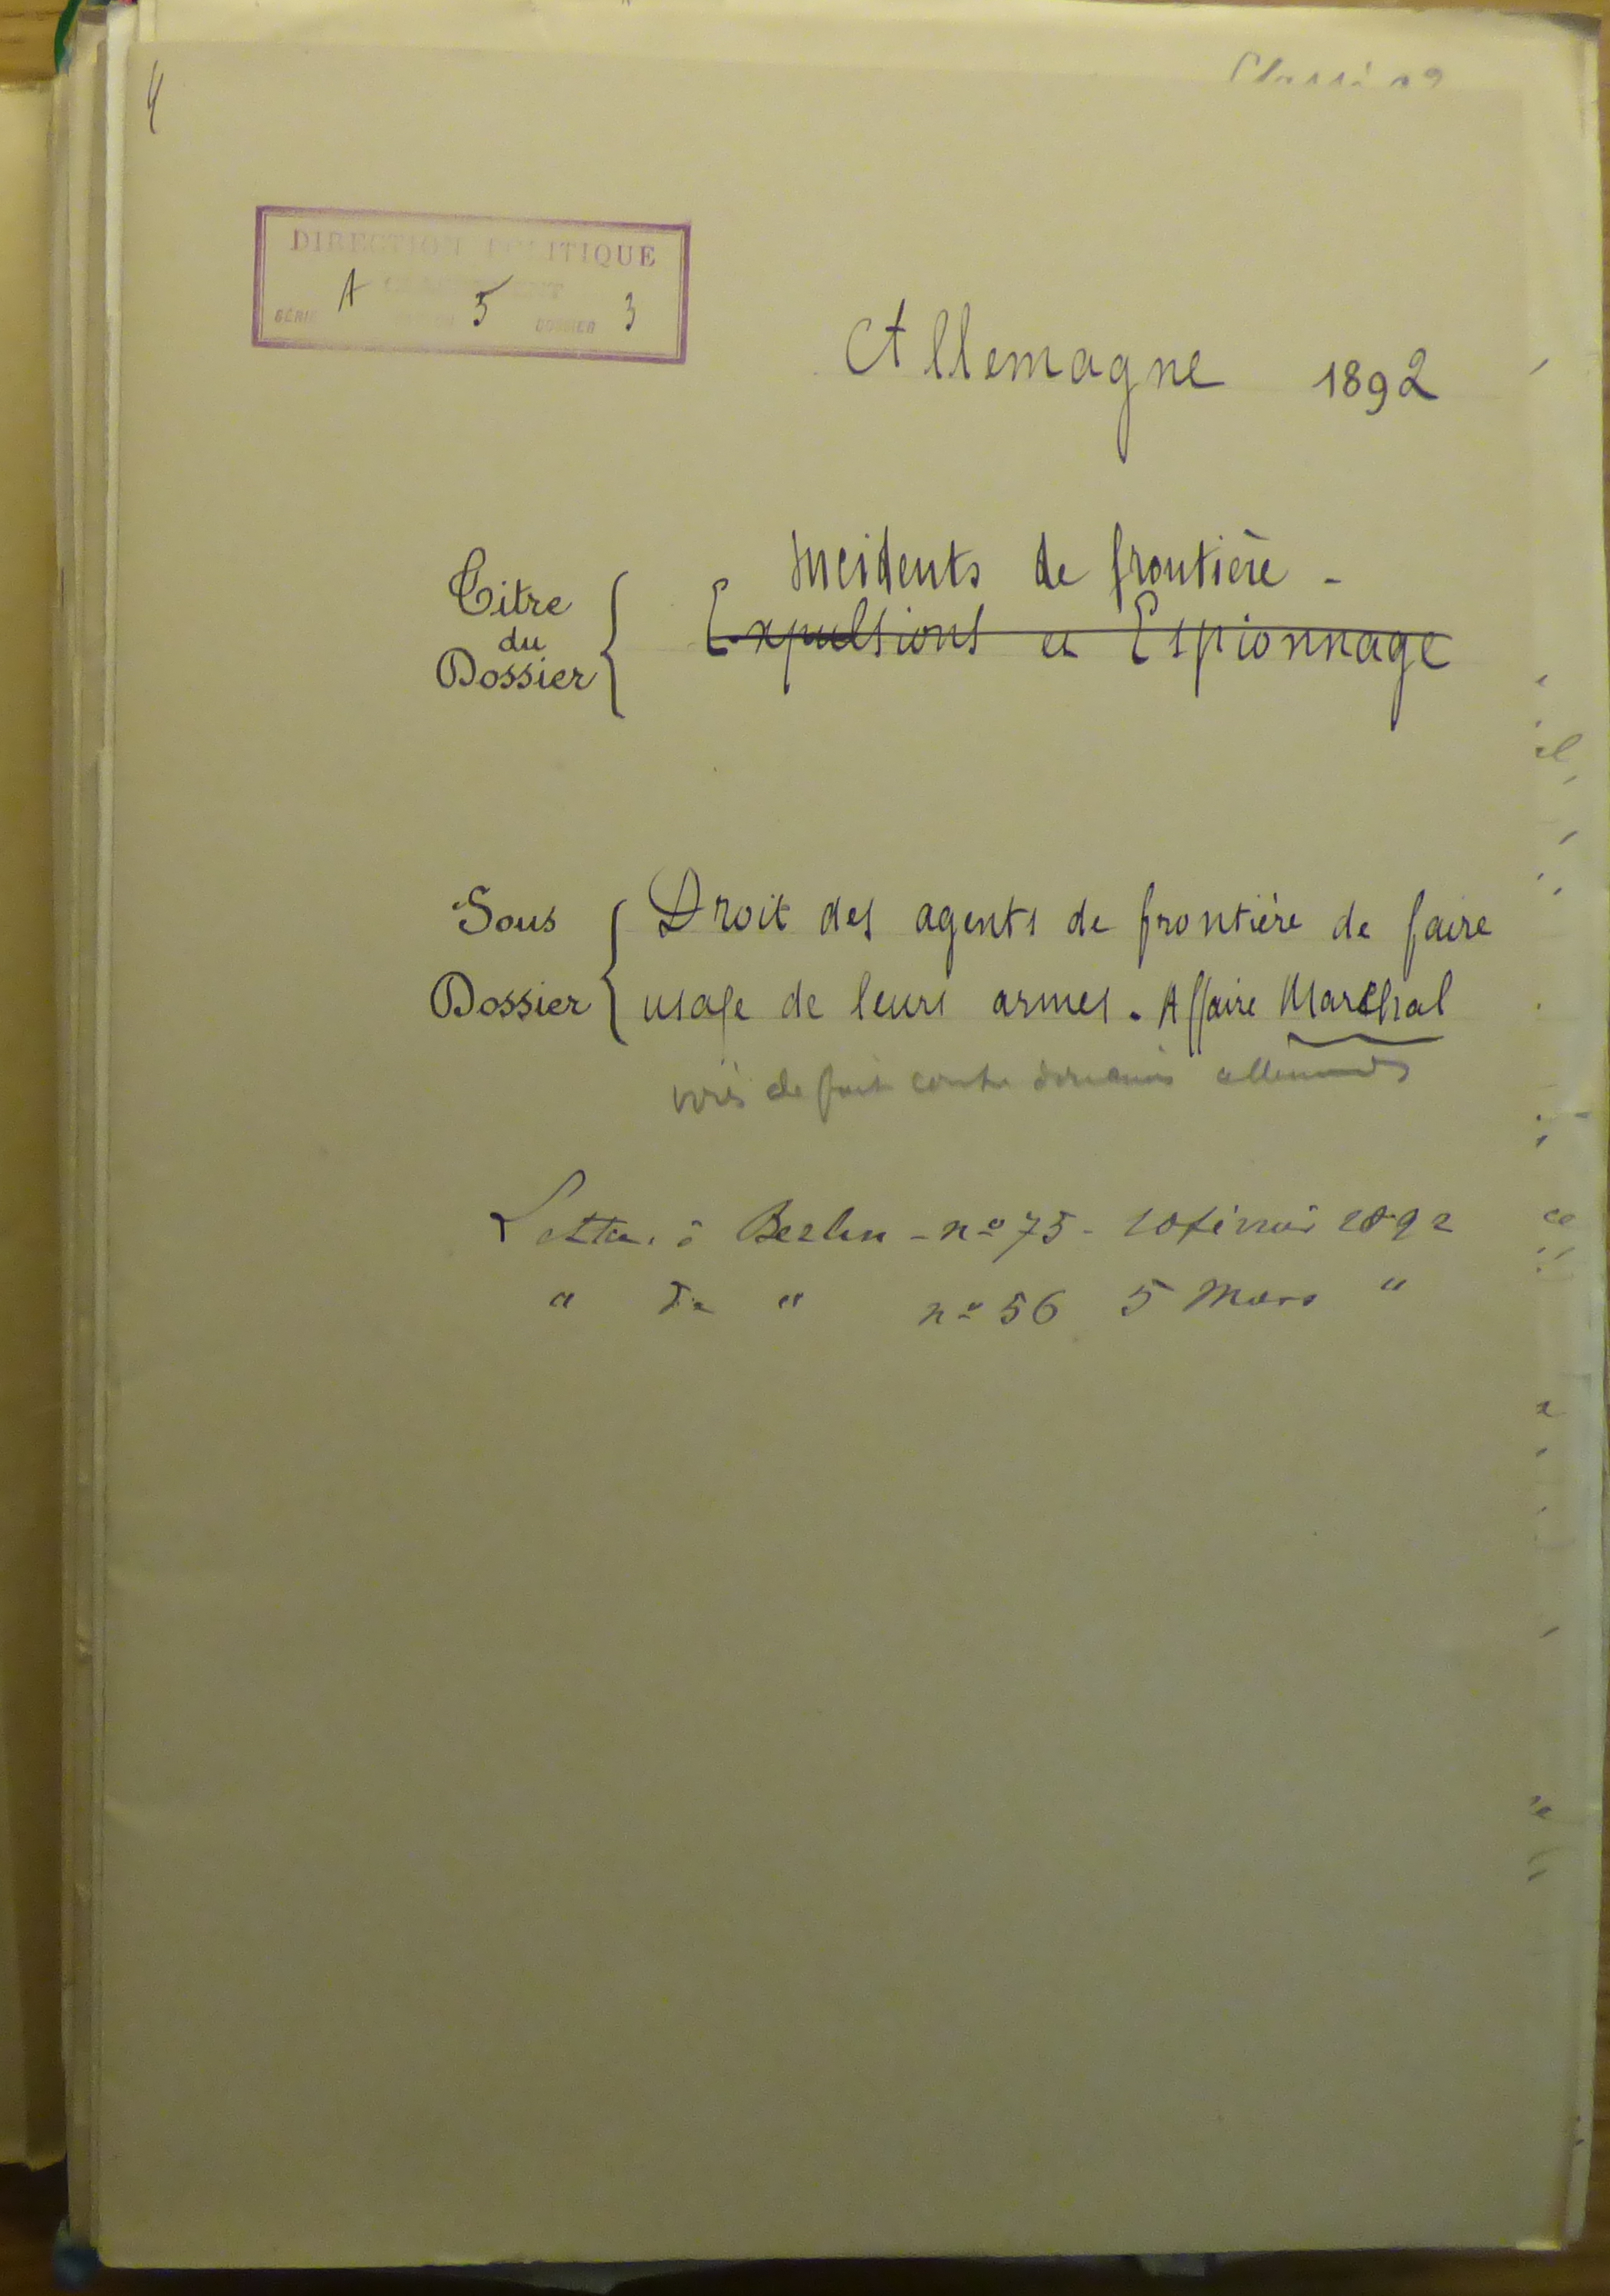 4
DIRECTION POLITIQUE
SÉRIE A 5 DOSSIER 3
Allemagne 1892
Incidents de frontière -
Titre
du
Dossier
Expulsions et Espionnage
Sous
Dossier
Droit des agents de frontière de faire
usage de leurs armes. Affaire Maréchal
de fait contre allemands
Lettre à Berlin - nº 75 - 10 février 1892
" de " nº 56 5 Mars "